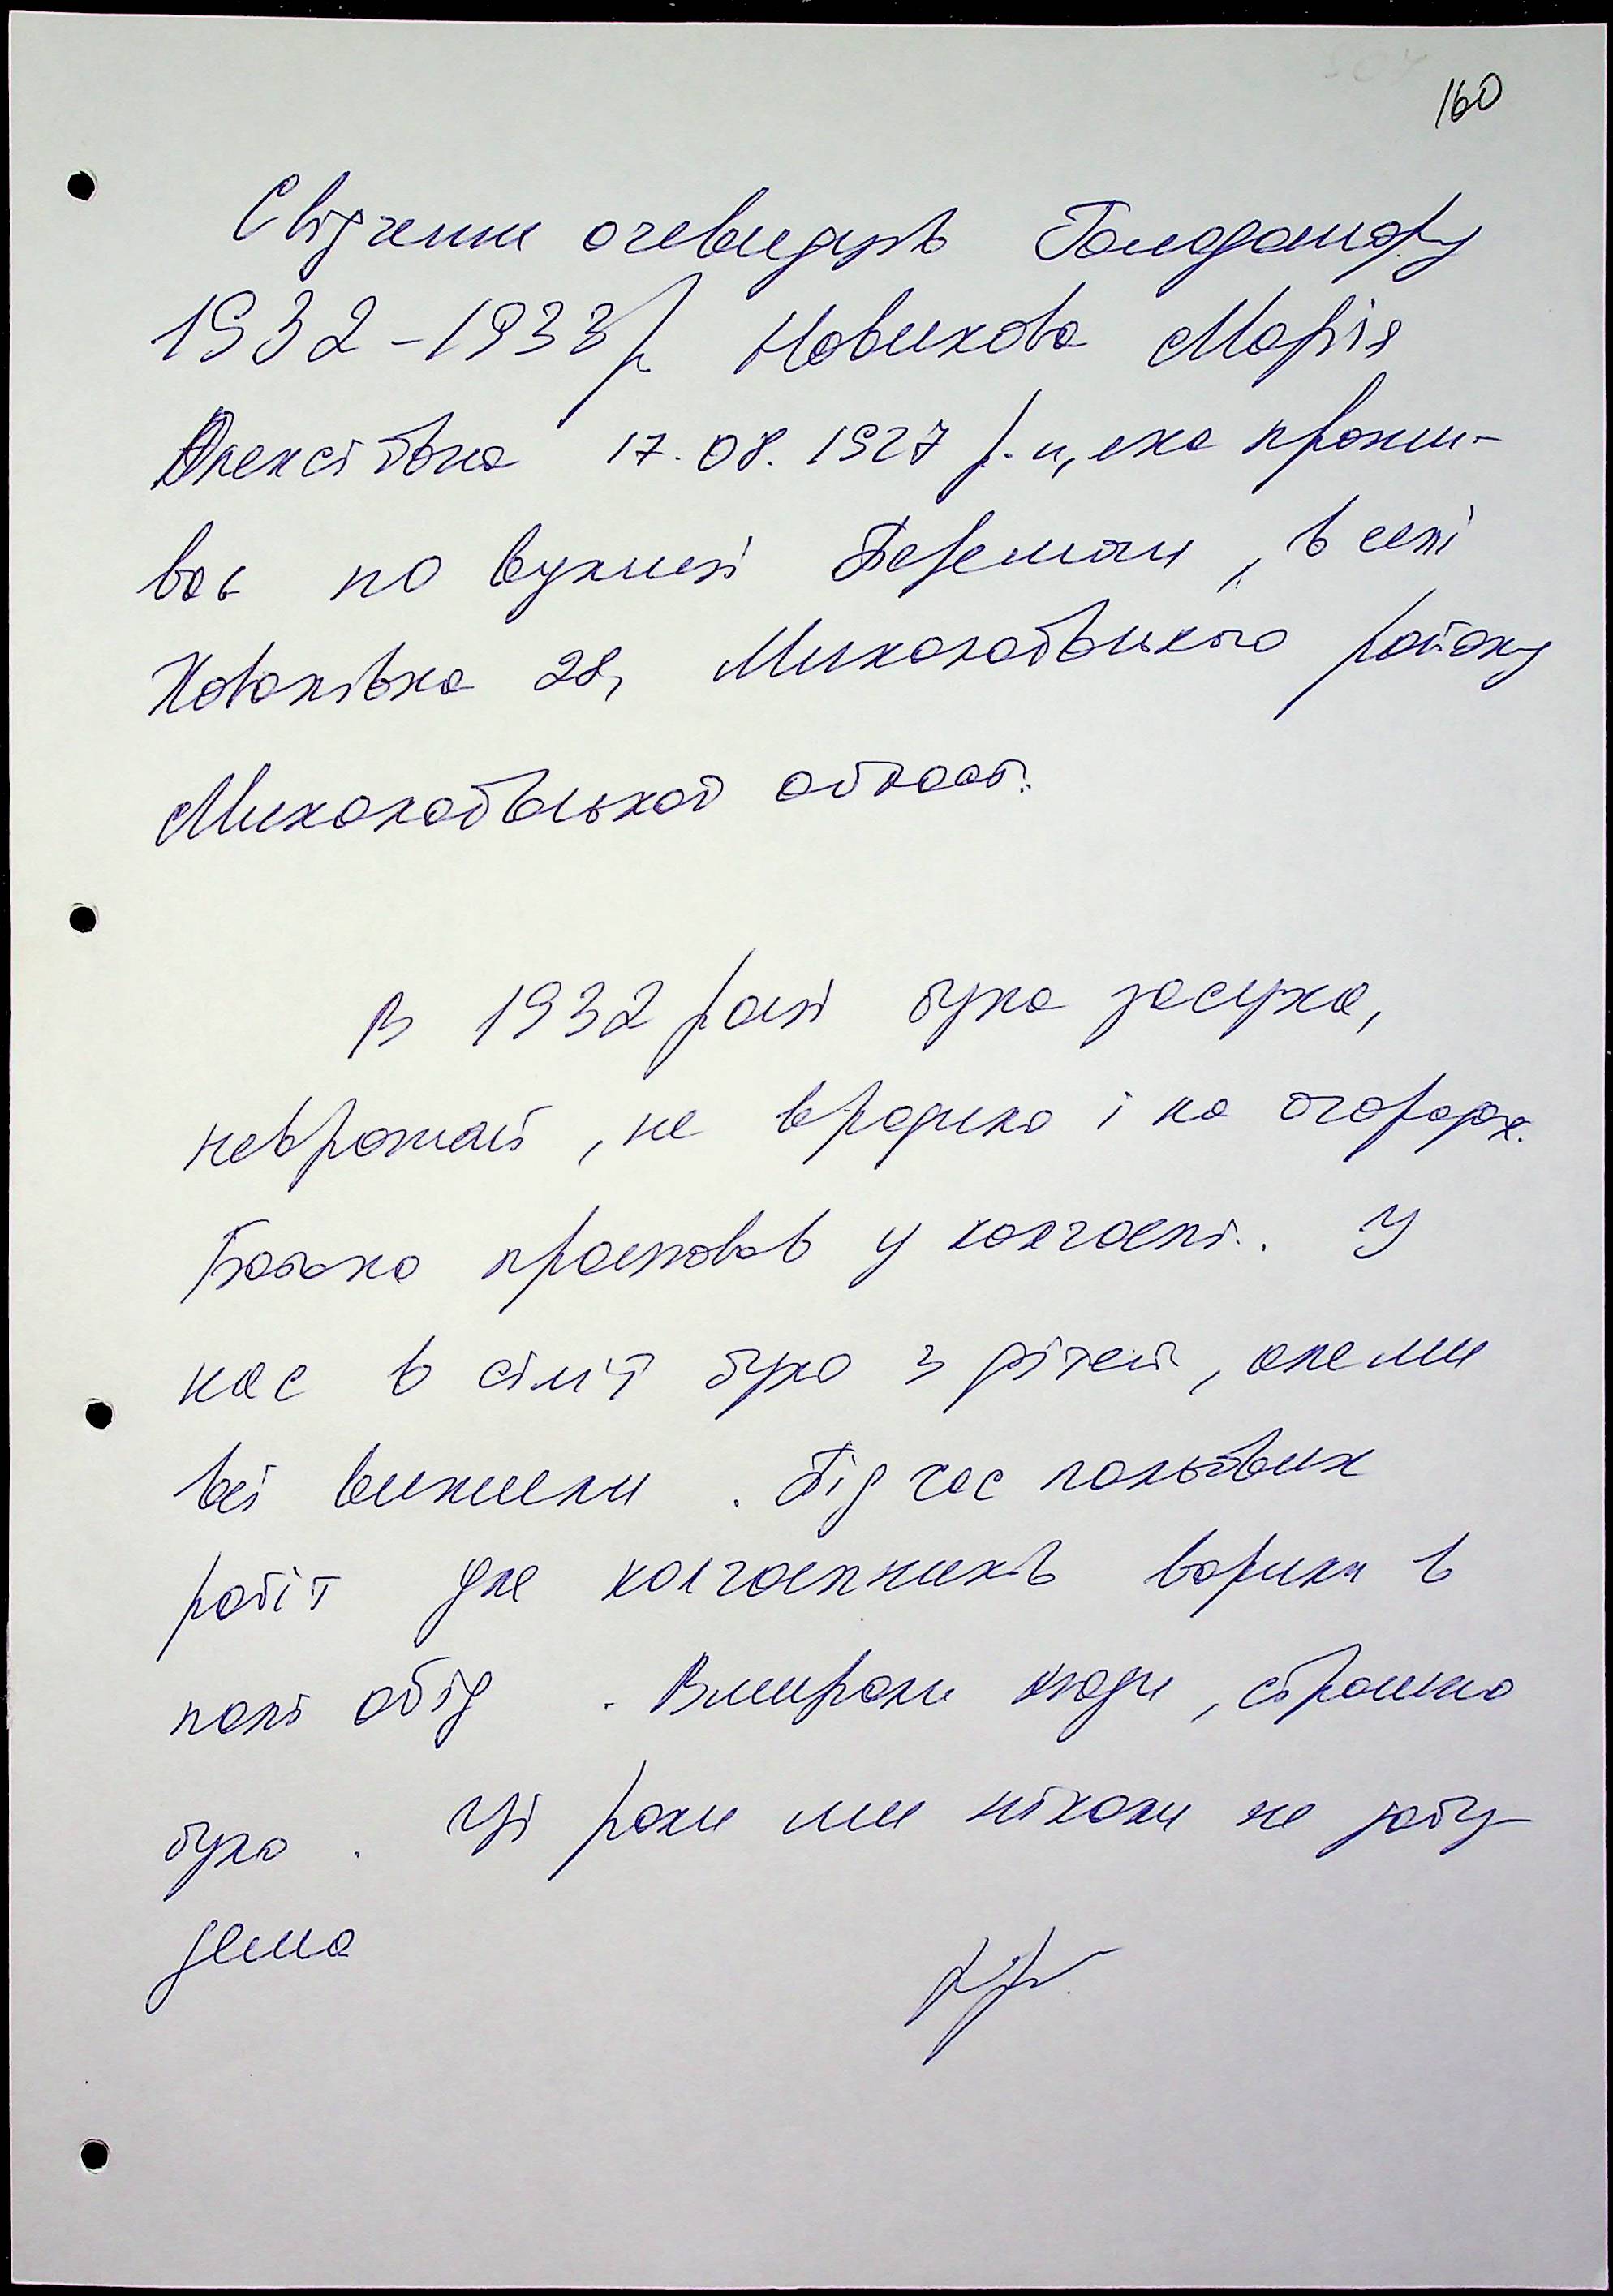 160
Свідчення очевидців Голодомору
1932-1933р Новикова Марія
Олексіївна 17.08.1927 р.н, яка прожи-
ває по вулиці , в селі
Ковалівка 28, Миколаївського району
Миколаївської област.
В 1932 році була засуха,
неврожай, не вродило і на огородах.
Батько працював у колгоспі. У
нас в сім'ї було 3 дітей, але ми
всі вижили. Під час польових
робіт для колгоспників варили в
полі обід. Вмирали люди, страшно
було. Ці роки ми ніколи не забу-
демо